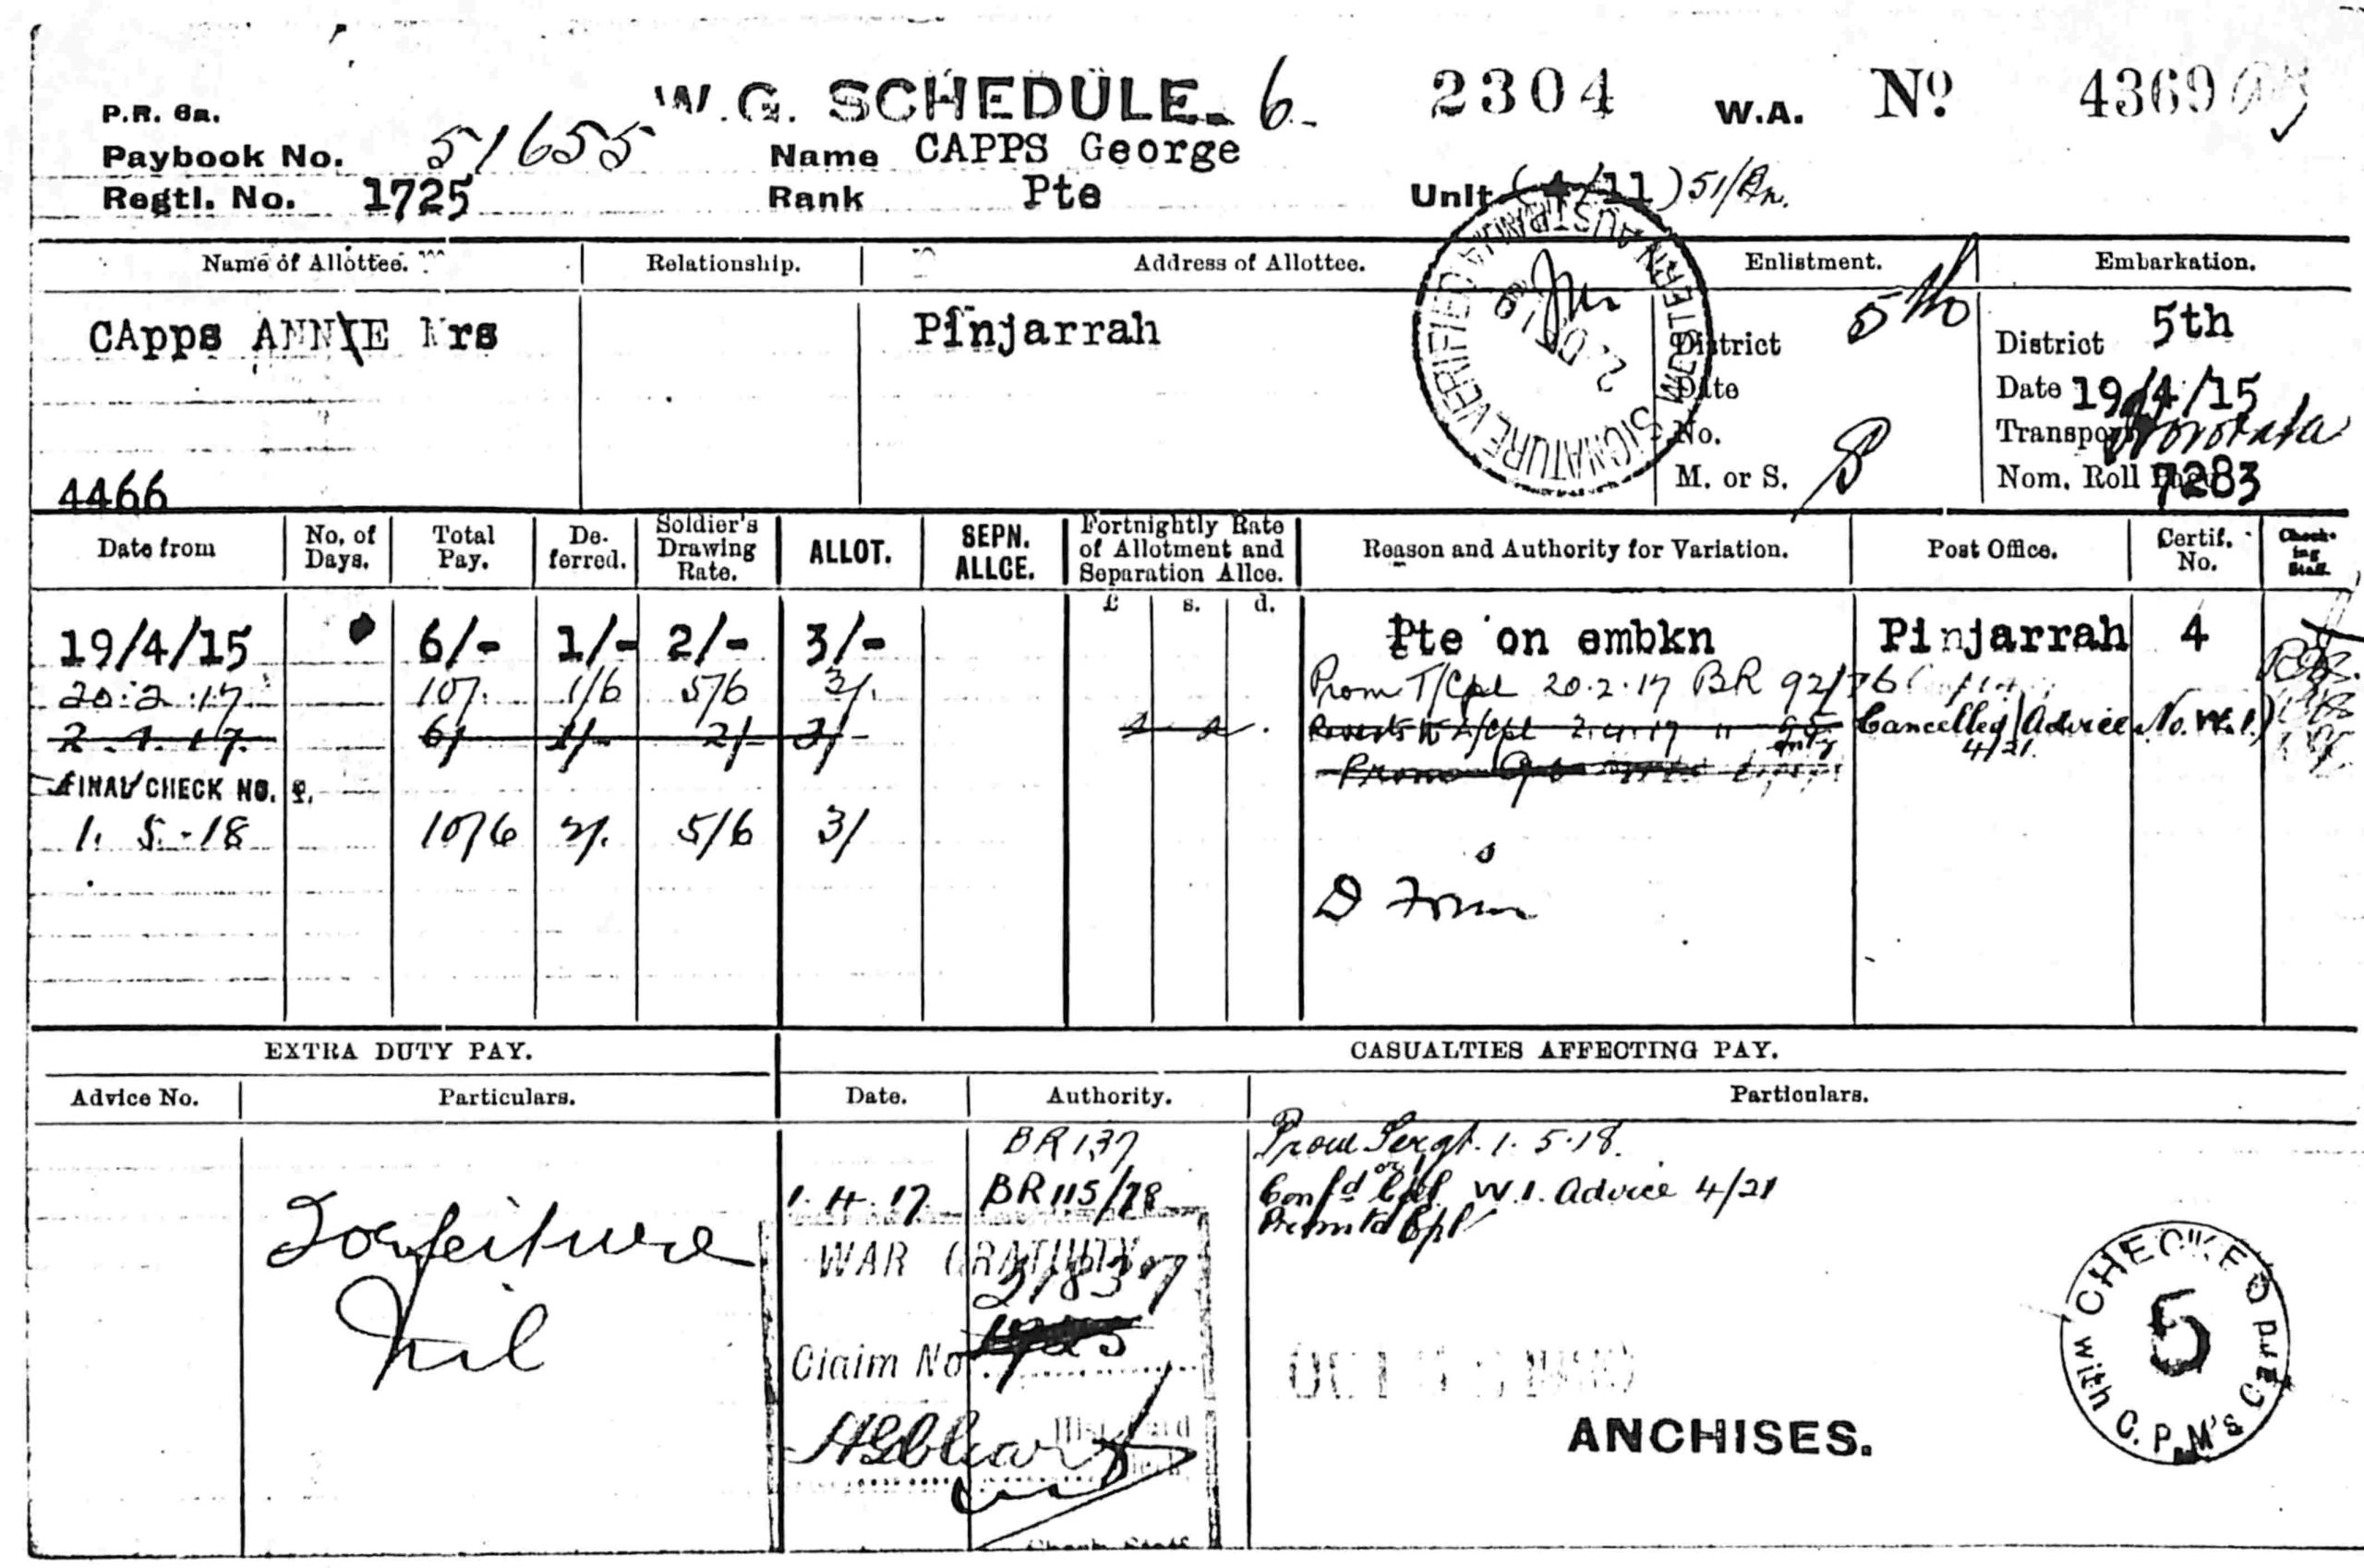 W.G. SCHEDULE. 6. 2304 W.A. No. 4369
P.R. 6a.
Paybook No. 51655 Name CAPPS George
Regtl. No. 1725 Rank Pte Unit (4/11) 51/Bn.
Name of Allottee. Relationship. Address of Allottee. Enlistment. Embarkation.
CApps ANNIE Mrs Pinjarrah District 5th District 5th
Date Date 19/4/15
No. Transport
M. or S. S Nom. Roll 7283
4466
SIGNATURE VERIFIED WESTERN AUSTRALIA
Date from No. of Days. Total Pay. Deferred. Soldier's Drawing Rate. ALLOT. SEPN. ALLCE. Fortnightly Rate of Allotment and Separation Allce. Reason and Authority for Variation. Post Office. Certif. No. Checking Staff.
£ s. d.
19/4/15 6/- 1/- 2/- 3/- Pte on embkn Pinjarrah 4
20.2.17 10/. 1/6 5/6 3/. Prom T/Cpl 20.2.17 BR 92/76
2.4.17. 6/ 1/- 2/- 3/- Cancelled Advice No. W.1.)
4/21.
FINAL CHECK NO. 2.
1. 5.-18 10/6 2/. 5/6 3/
EXTRA DUTY PAY. CASUALTIES AFFECTING PAY.
Advice No. Particulars. Date. Authority. Particulars.
BR 137 Prom Sergt. 1.5.18.
1.4.17 BR 115/78 Conf'd Cpl W.1. Advice 4/21
Cpl
Forfeiture
Nil
WAR GRATUITY
21837
Claim No.
ANCHISES.
CHECKED with C.P.M's Card
5